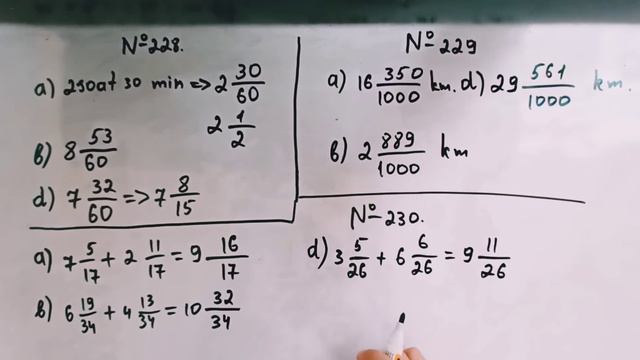 №228.
a) 2 soat 30 min => 2 30/60
2 1/2
b) 8 53/60
d) 7 32/60 => 7 8/15
№229
a) 16 350/1000 km. d) 29 561/1000 km.
b) 2 889/1000 km
№230.
a) 7 5/17 + 2 11/17 = 9 16/17
b) 6 19/34 + 4 13/34 = 10 32/34
d) 3 5/26 + 6 6/26 = 9 11/26